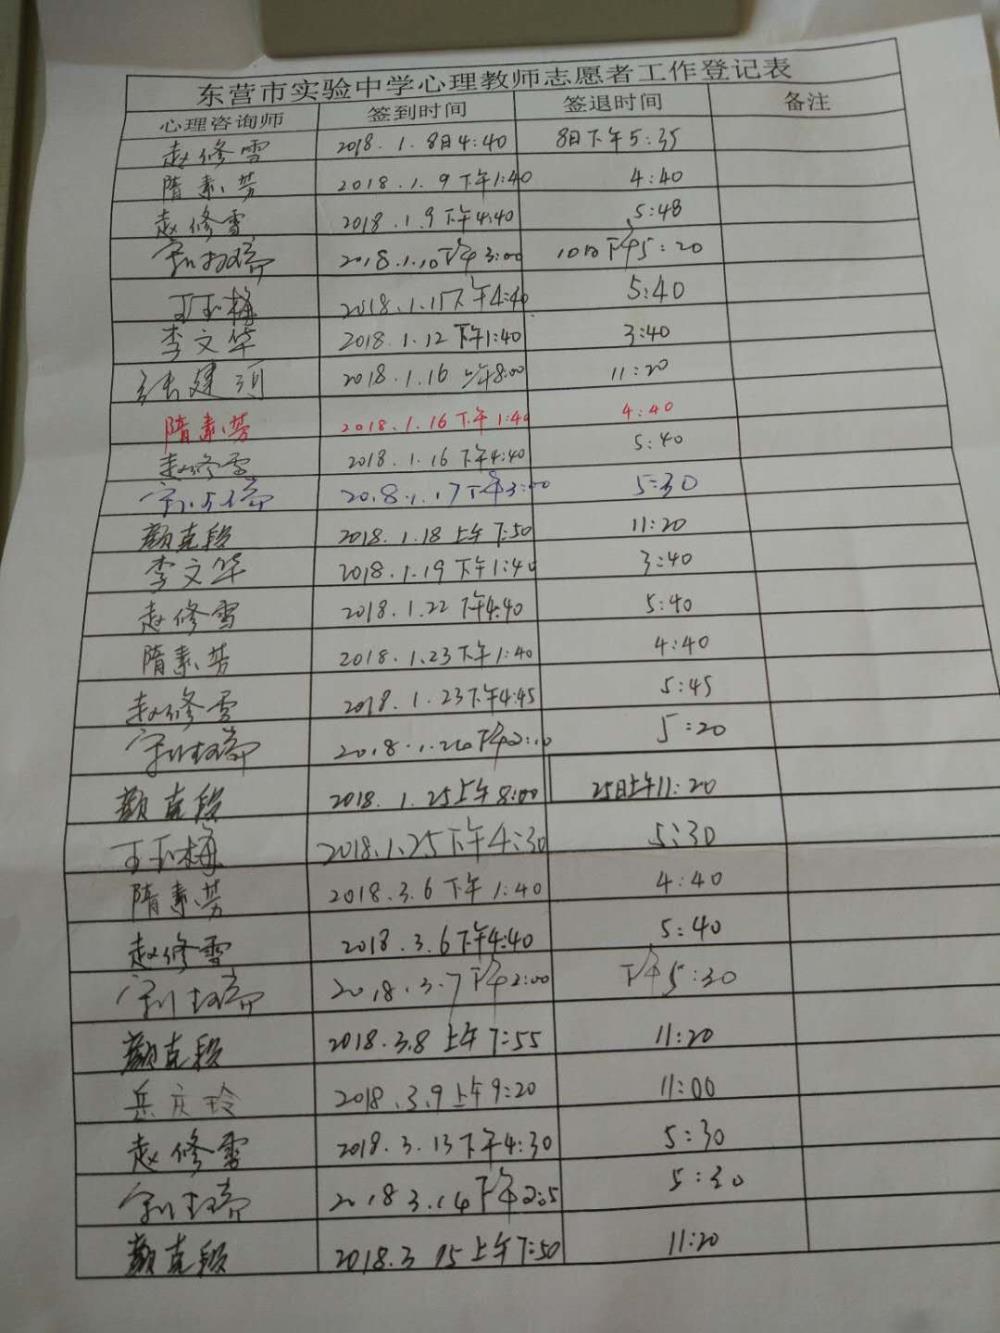 东营市实验中学心理教师志愿者工作登记表
心理咨询师 签到时间 签退时间 备注
赵修雪 2018.1.8日4:40 8日下午5:35
隋素芳 2018.1.9下午1:40 4:40
赵修雪 2018.1.9下午4:40 5:48
2018.1.10下午3:00 10日下午5:20
王玉梅 2018.1.15下午4:40 5:40
李文华 2018.1.12下午1:40 3:40
张建河 2018.1.16上午8:00 11:20
隋素芳 2018.1.16下午1:40 4:40
赵修雪 2018.1.16下午4:40 5:40
2018.1.17下午3:00 5:30
颜克段 2018.1.18上午7:50 11:20
李文华 2018.1.19下午1:40 3:40
赵修雪 2018.1.22下午4:40 5:40
隋素芳 2018.1.23下午1:40 4:40
赵修雪 2018.1.23下午4:45 5:45
5:20
颜克段 2018.1.25上午8:00 25日上午11:20
王玉梅 2018.1.25下午4:30 5:30
隋素芳 2018.3.6下午1:40 4:40
赵修雪 2018.3.6下午4:40 5:40
2018.3.7下午2:00 下午5:30
颜克段 2018.3.8上午7:55 11:20
岳庆玲 2018.3.9上午9:20 11:00
赵修雪 2018.3.13下午4:30 5:30
2018 3.14下午2:5 5:30
颜克段 2018.3 15上午7:50 11:20